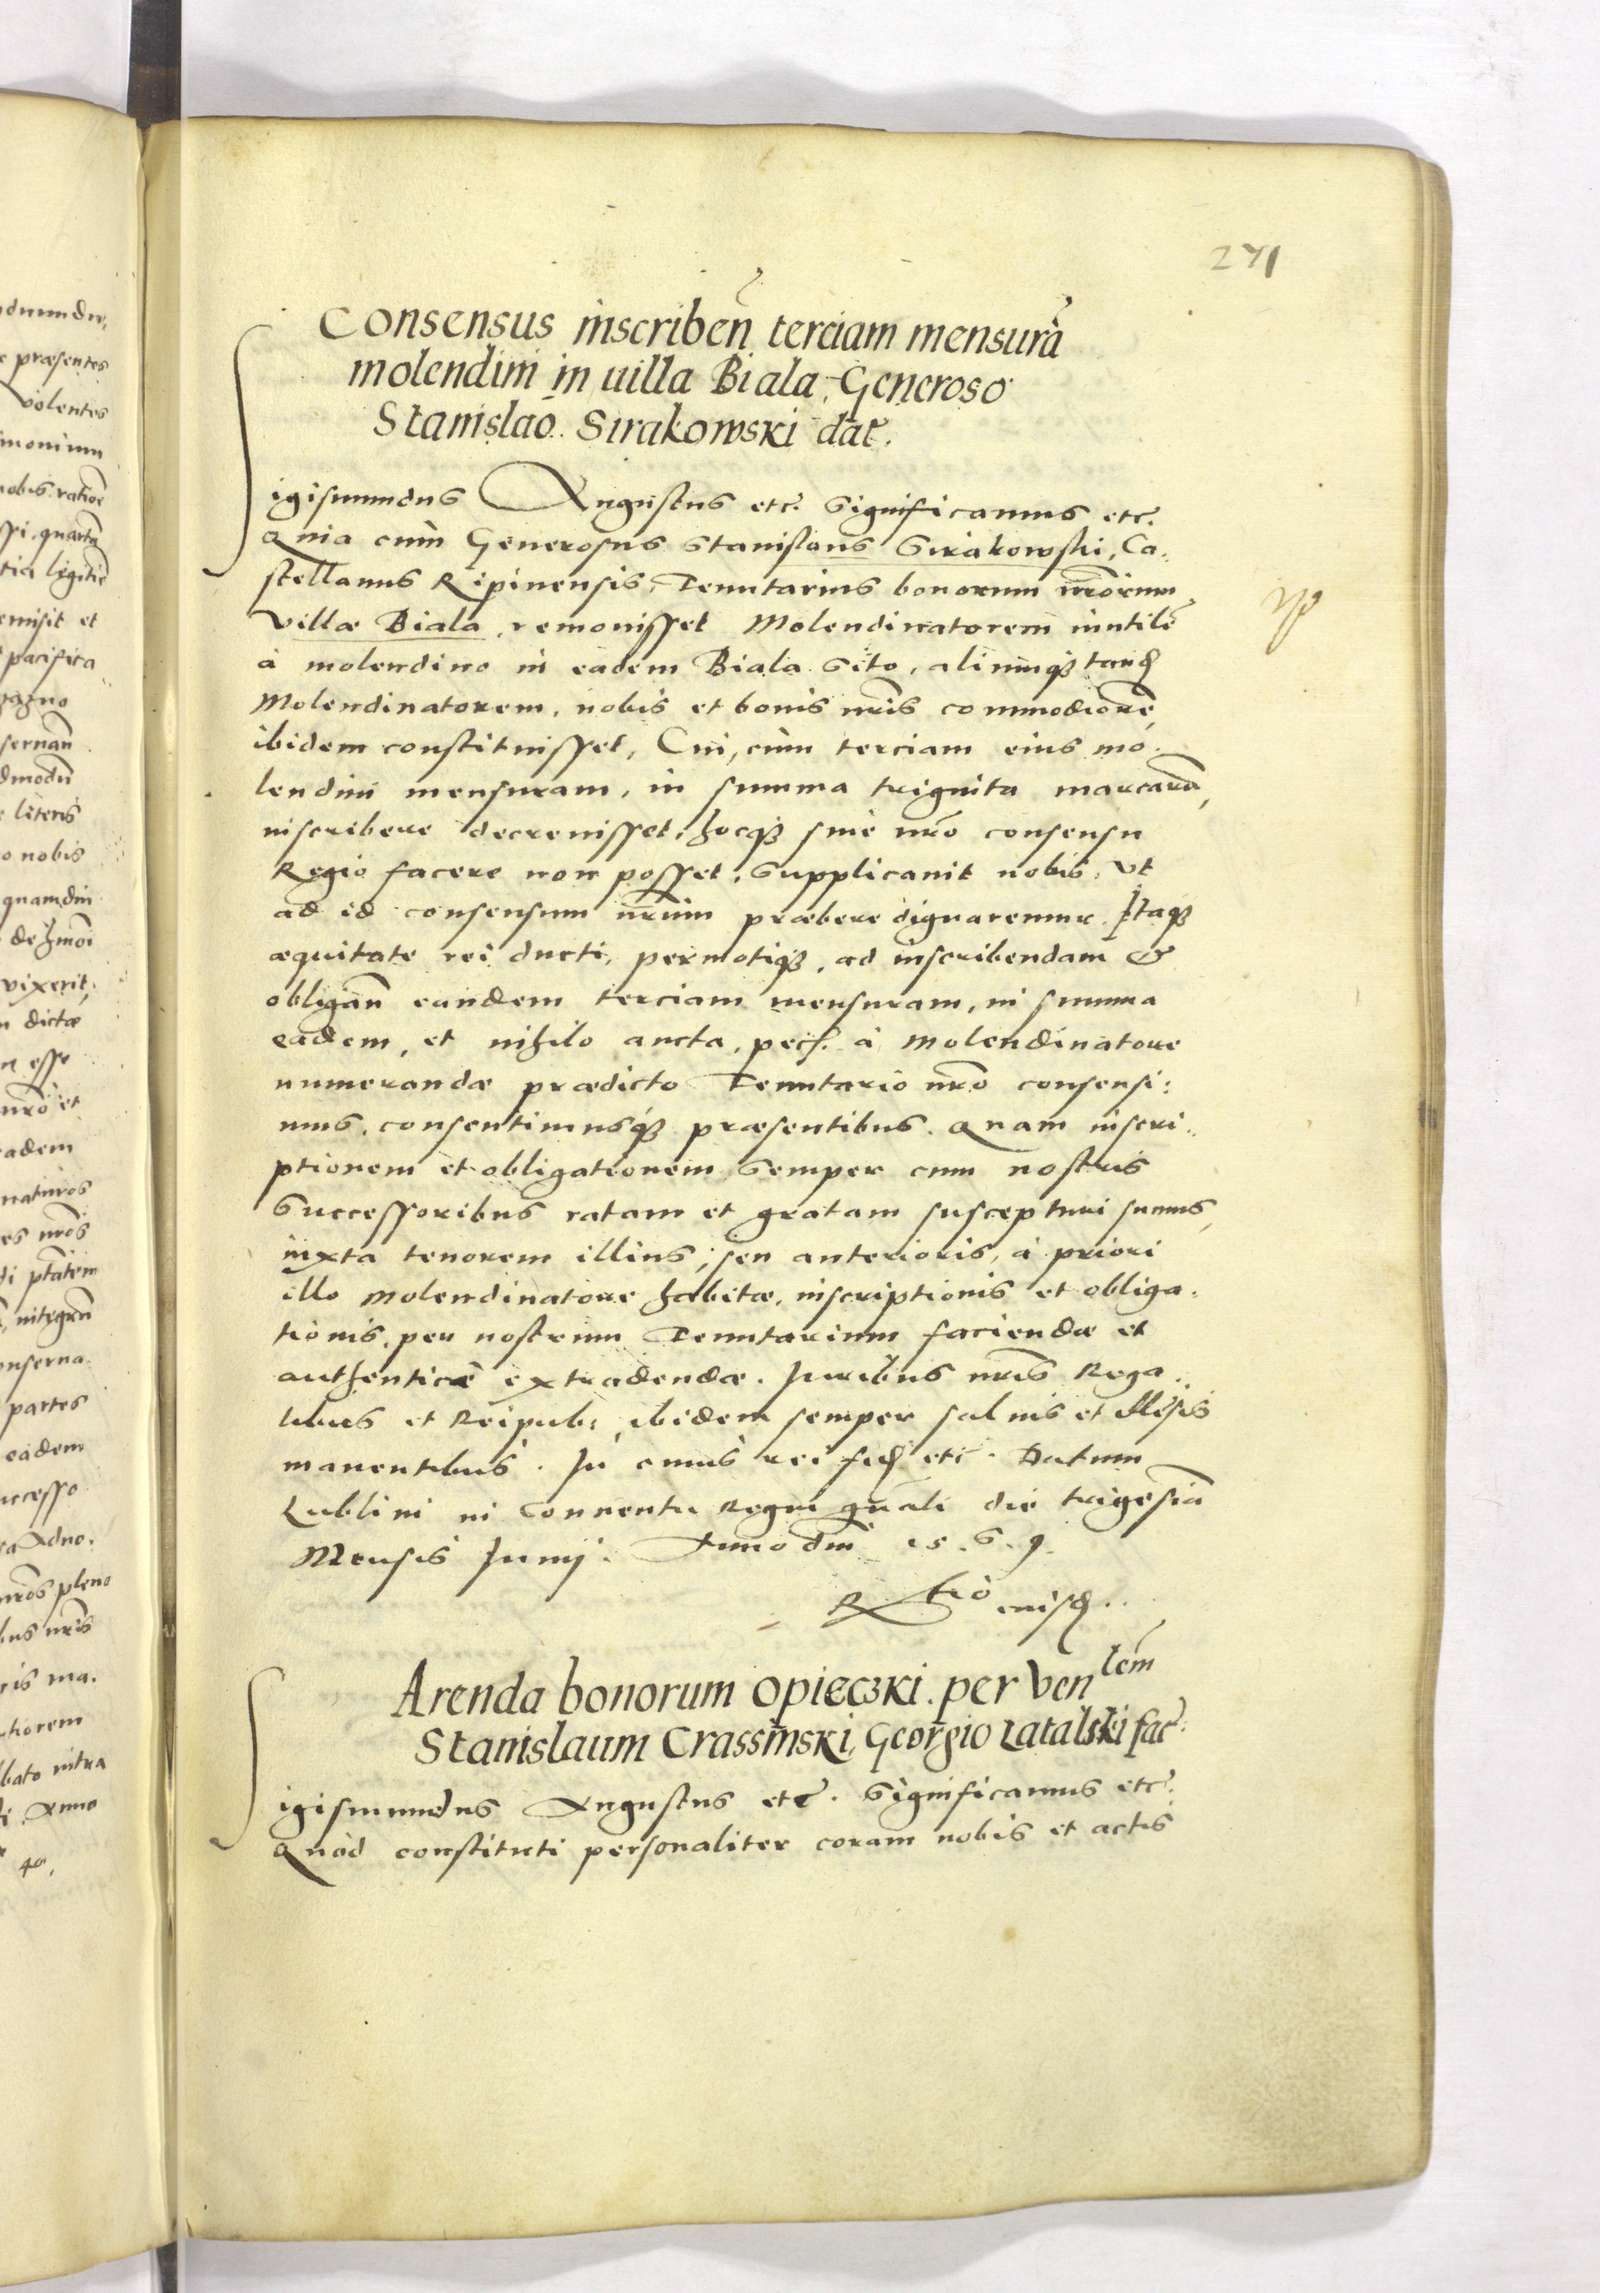 271
Consensus inscribeñ terciam mensurã
molendini in uilla Biala, Generoso
Stanislao Sirakowski dat̃.
Sigismundus Augustus etc̃. significamus etc̃.
Quia cum Generosus Stanislaus Sirakowski, Ca-
stellanus Ripinensis, Tenutarius bonorum nr̃orum
villæ Biala, remouisset Molendinatorem inutilẽ
à molendino in eadem Biala sito, aliumq; tandẽ
Molendinatorem, nobis et bonis nr̃is commodiorẽ,
ibidem constituisset, Cui, cùm terciam eius mo-
lendini mensuram, in summa triginta marcarũ,
inscribere decreuisset, hocq; sine nr̃o consensu
Regio facere non posset, supplicauit nobis, vt
ad id consensum nr̃um præbere dignaremur. Itaq;
æquitate rei ducti, permotiq;, ad inscribendam &
obligañ eandem terciam mensuram, in summa
eadem, et nihilo aucta, pec: à Molendinatore
numerandæ prædicto Tenutario nr̃o consensi-
mus, consentimusq; præsentibus. Quam inscri-
ptionem et obligationem semper cum nostris
Successoribus ratam et gratam suscepturi sumus,
iuxta tenorem illius, seu anterioris, à priori
illo Molendinatore habitæ, inscriptionis et obliga-
tionis, per nostrum Tenutarium faciendæ et
authenticè extradendæ. Iuribus nr̃is Rega-
libus et Reipub: ibidem semper saluis et illesis
manentibus. In cuius rei fidẽ etc̃. Datum
Lublini in Conuentu Regni gñali die trigesima
Mensis Iunij. Anno dni 1569.
R̃tio eiusdẽ.
Arenda bonorum Opieczki per Venlem
Stanislaum Crassinski, Georgio Latalski fac̃.
Sigismundus Augustus etc̃. significamus etc̃.
Quòd constituti personaliter coram nobis et actis